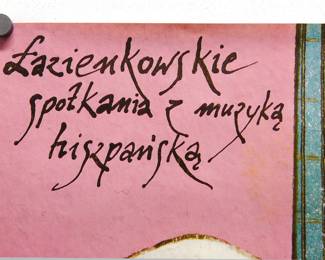 Łazienkowskie
spotkania z muzyką
hiszpańską